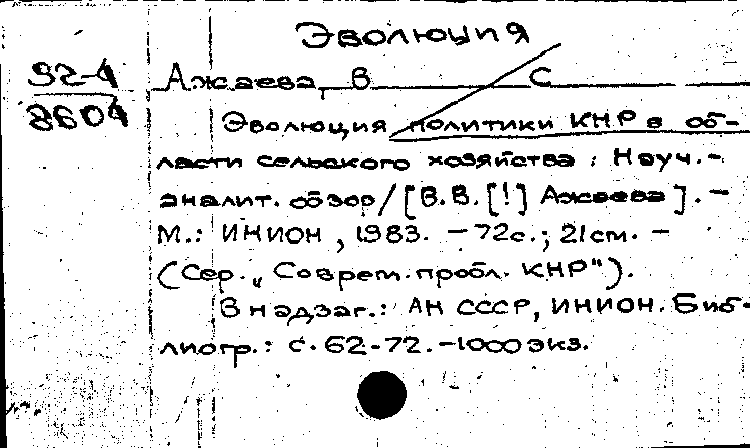 Эволюция
92-4
8604
Ажаева, В С
Эволюция политики КНР в об-
ласти сельского хозяйства: Науч.-
аналит. обзор/[В.В.[!] Ажаева]. -
М.: ИНИОН, 1983. - 72с.; 21см. -
(Сер. „Соврем. пробл. КНР").
В надзаг.: АН СССР, ИНИОН. Биб-
лиогр.: с. 62-72. -1000 экз.